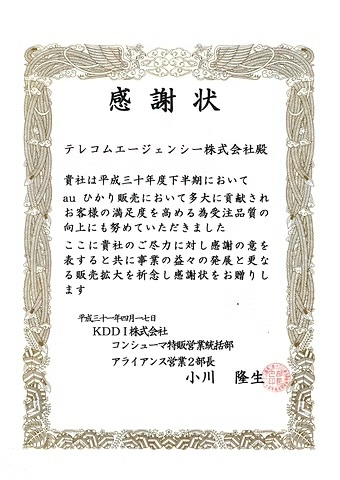 感謝状
テレコムエージェンシー株式会社殿
貴社は平成三十年度下半期において
au ひかり販売において多大に貢献され
お客様の満足度を高める為受注品質の
向上にも努めていただきました
ここに貴社のご尽力に対し感謝の意を
表すると共に事業の益々の発展と更な
る販売拡大を祈念し感謝状をお贈りし
ます
平成三十一年四月一七日
KDDI株式会社
コンシューマ特販営業統括部
アライアンス営業2部長
小川 隆生